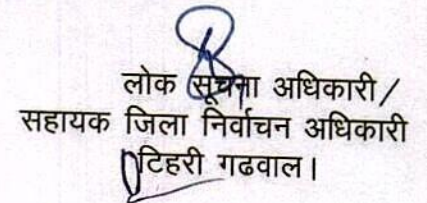 लोक सूचना अधिकारी/
सहायक जिला निर्वाचन अधिकारी
टिहरी गढवाल।